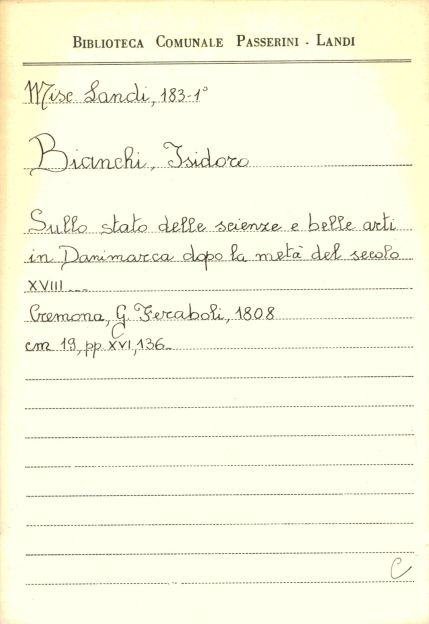 BIBLIOTECA COMUNALE PASSERINI - LANDI
Misc Landi, 183-1°
Bianchi, Isidoro
Sullo stato delle scienze e belle arti
in Danimarca dopo la metà del secolo
XVIII ...
Cremona, G. Feraboli, 1808
cm 19, pp. XVI, 136.
C